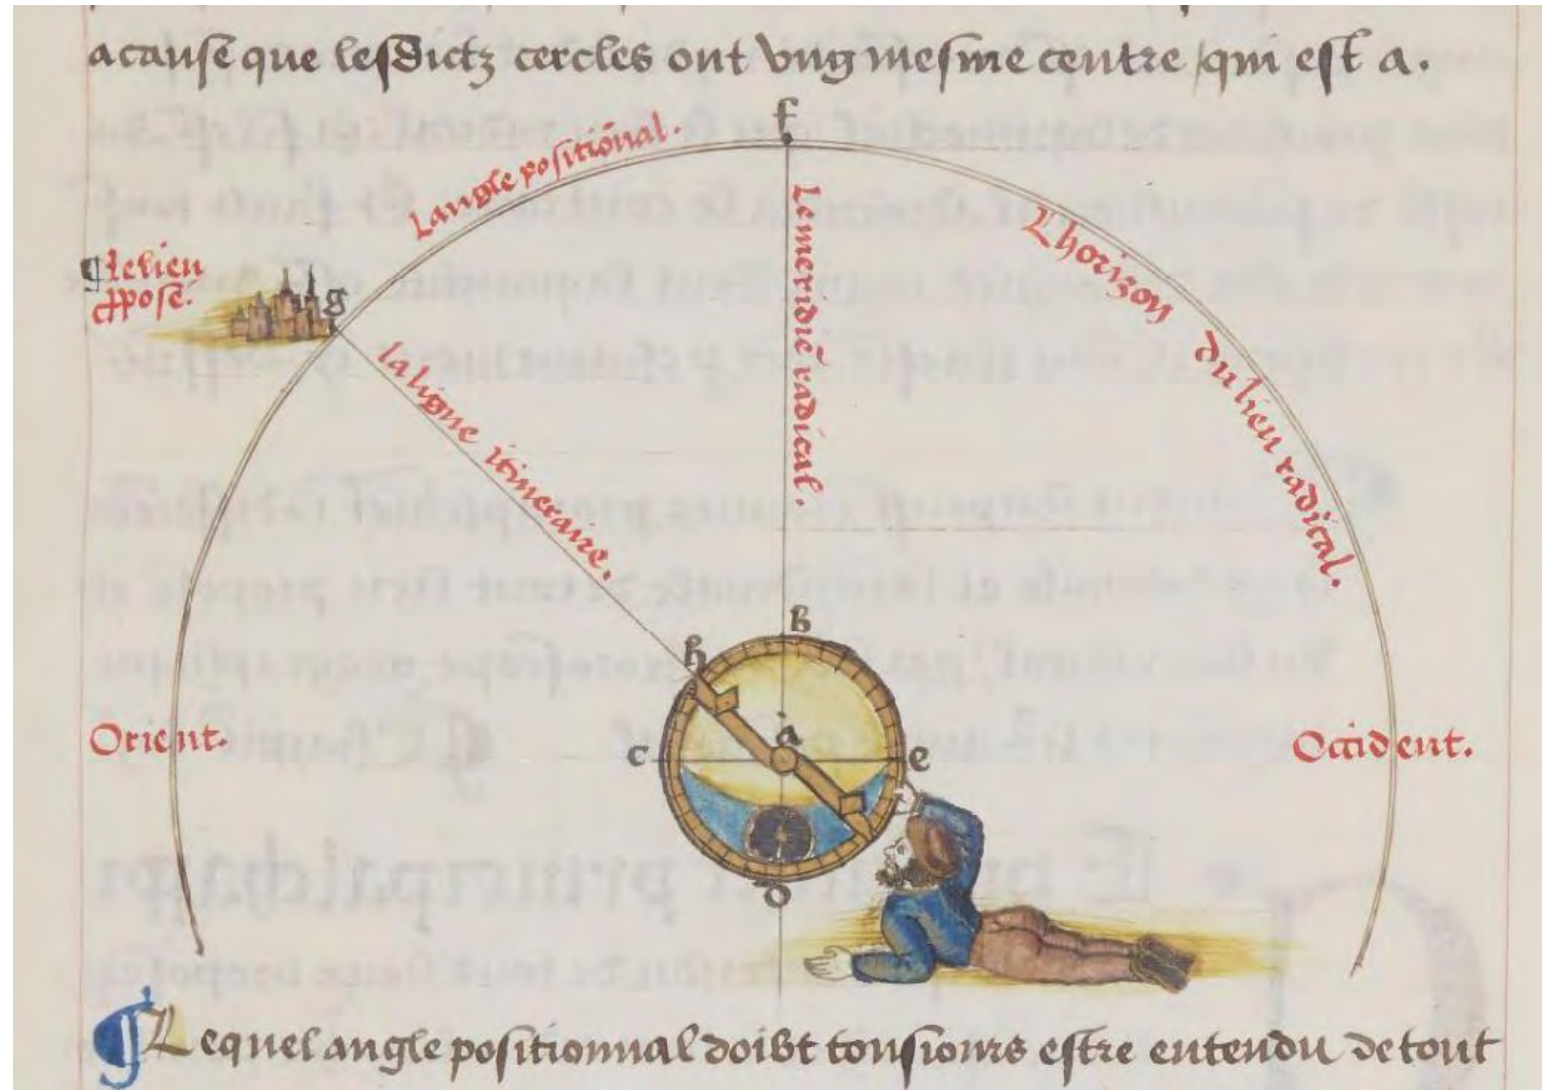 acause que lesdictz cercles ont ung mesme centre / qui est a.
f
Langle positiōnal.
Le meridiē radical.
Lhorizon du lieu radical.
¶ le lieu
ꝓpose.
g
la ligne itineraire.
B
h
a
Orient.
c
e
Occident.
D
¶ Lequel angle positionnal doibt tousiours estre entendu de tout